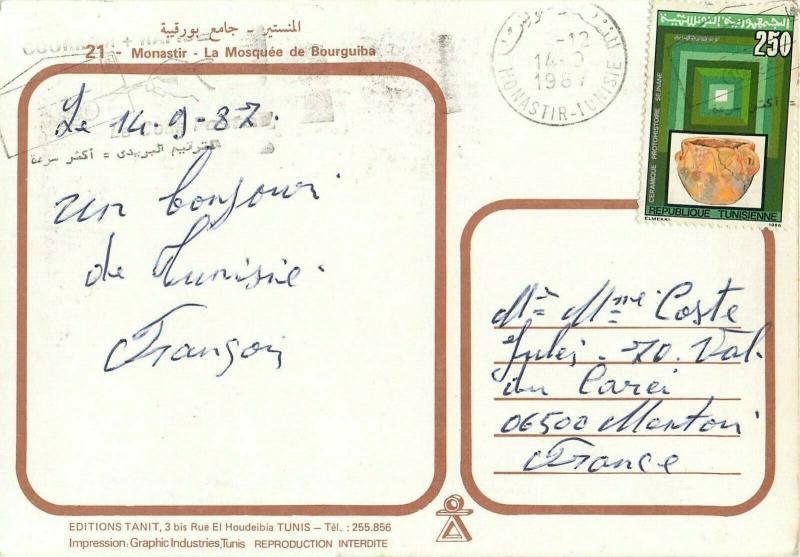 المنستير - جامع بورقيبة
21 - Monastir - La Mosquée de Bourguiba
14-9
1987
MONASTIR-TUNISIE
250
CERAMIQUE PROTOHISTOIRE SEJNANE
REPUBLIQUE TUNISIENNE
ELMEKKI 1986
Le 14.9.87.
الترقيم البريدي = أكثر سرعة
un bonjour
de Tunisie.
François
Mr Mme Coste
Jules. 70. Val.
du Carei
06500 Menton
France
EDITIONS TANIT, 3 bis Rue El Houdeibia TUNIS - Tél. : 255.856
Impression: Graphic Industries, Tunis REPRODUCTION INTERDITE